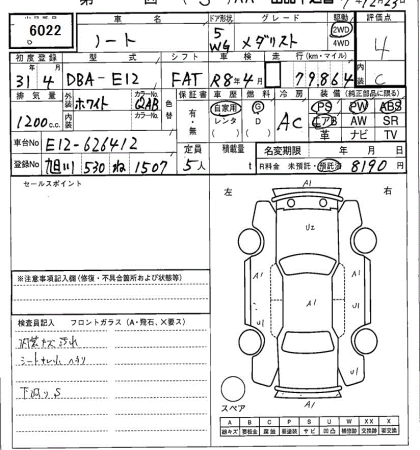 6022
車名 ドア形状 グレード 駆動 評価点
ノート 5 WG メダリスト 2WD 4WD 4
初度登録 型式 シフト 車検 走行(km・マイル)
31年4月 DBA-E12 FAT R8年4月 79,864 C
排気量 外装 カラーNo 色替 保証書 車歴 燃料 冷房 装備(純正部品に限る)
1200c.c. ホワイト QAB 有・無 自家用 レンタ G D AC PS PW ABS
内装 カラーNo エアB AW SR
革 ナビ TV
車台No E12-626412 定員 積載量 名変期限 年 月 日
登録No 旭川 530 ね 1507 5人 t R料金 未預託・預託済 8190円
セールスポイント
左 右
A1
U2
A1 A1 A1
U1 U1
U1
A1
※注意事項記入欄(修復・不具合箇所および状態等)
検査員記入 フロントガラス(A・飛石、×要ス)
内装キズ汚れ
下回りS
スペア
A B C P S U W X XX
線キズ 要板金 腐蝕 要塗装 サビ 凹凸 補修跡 要交換 交換跡